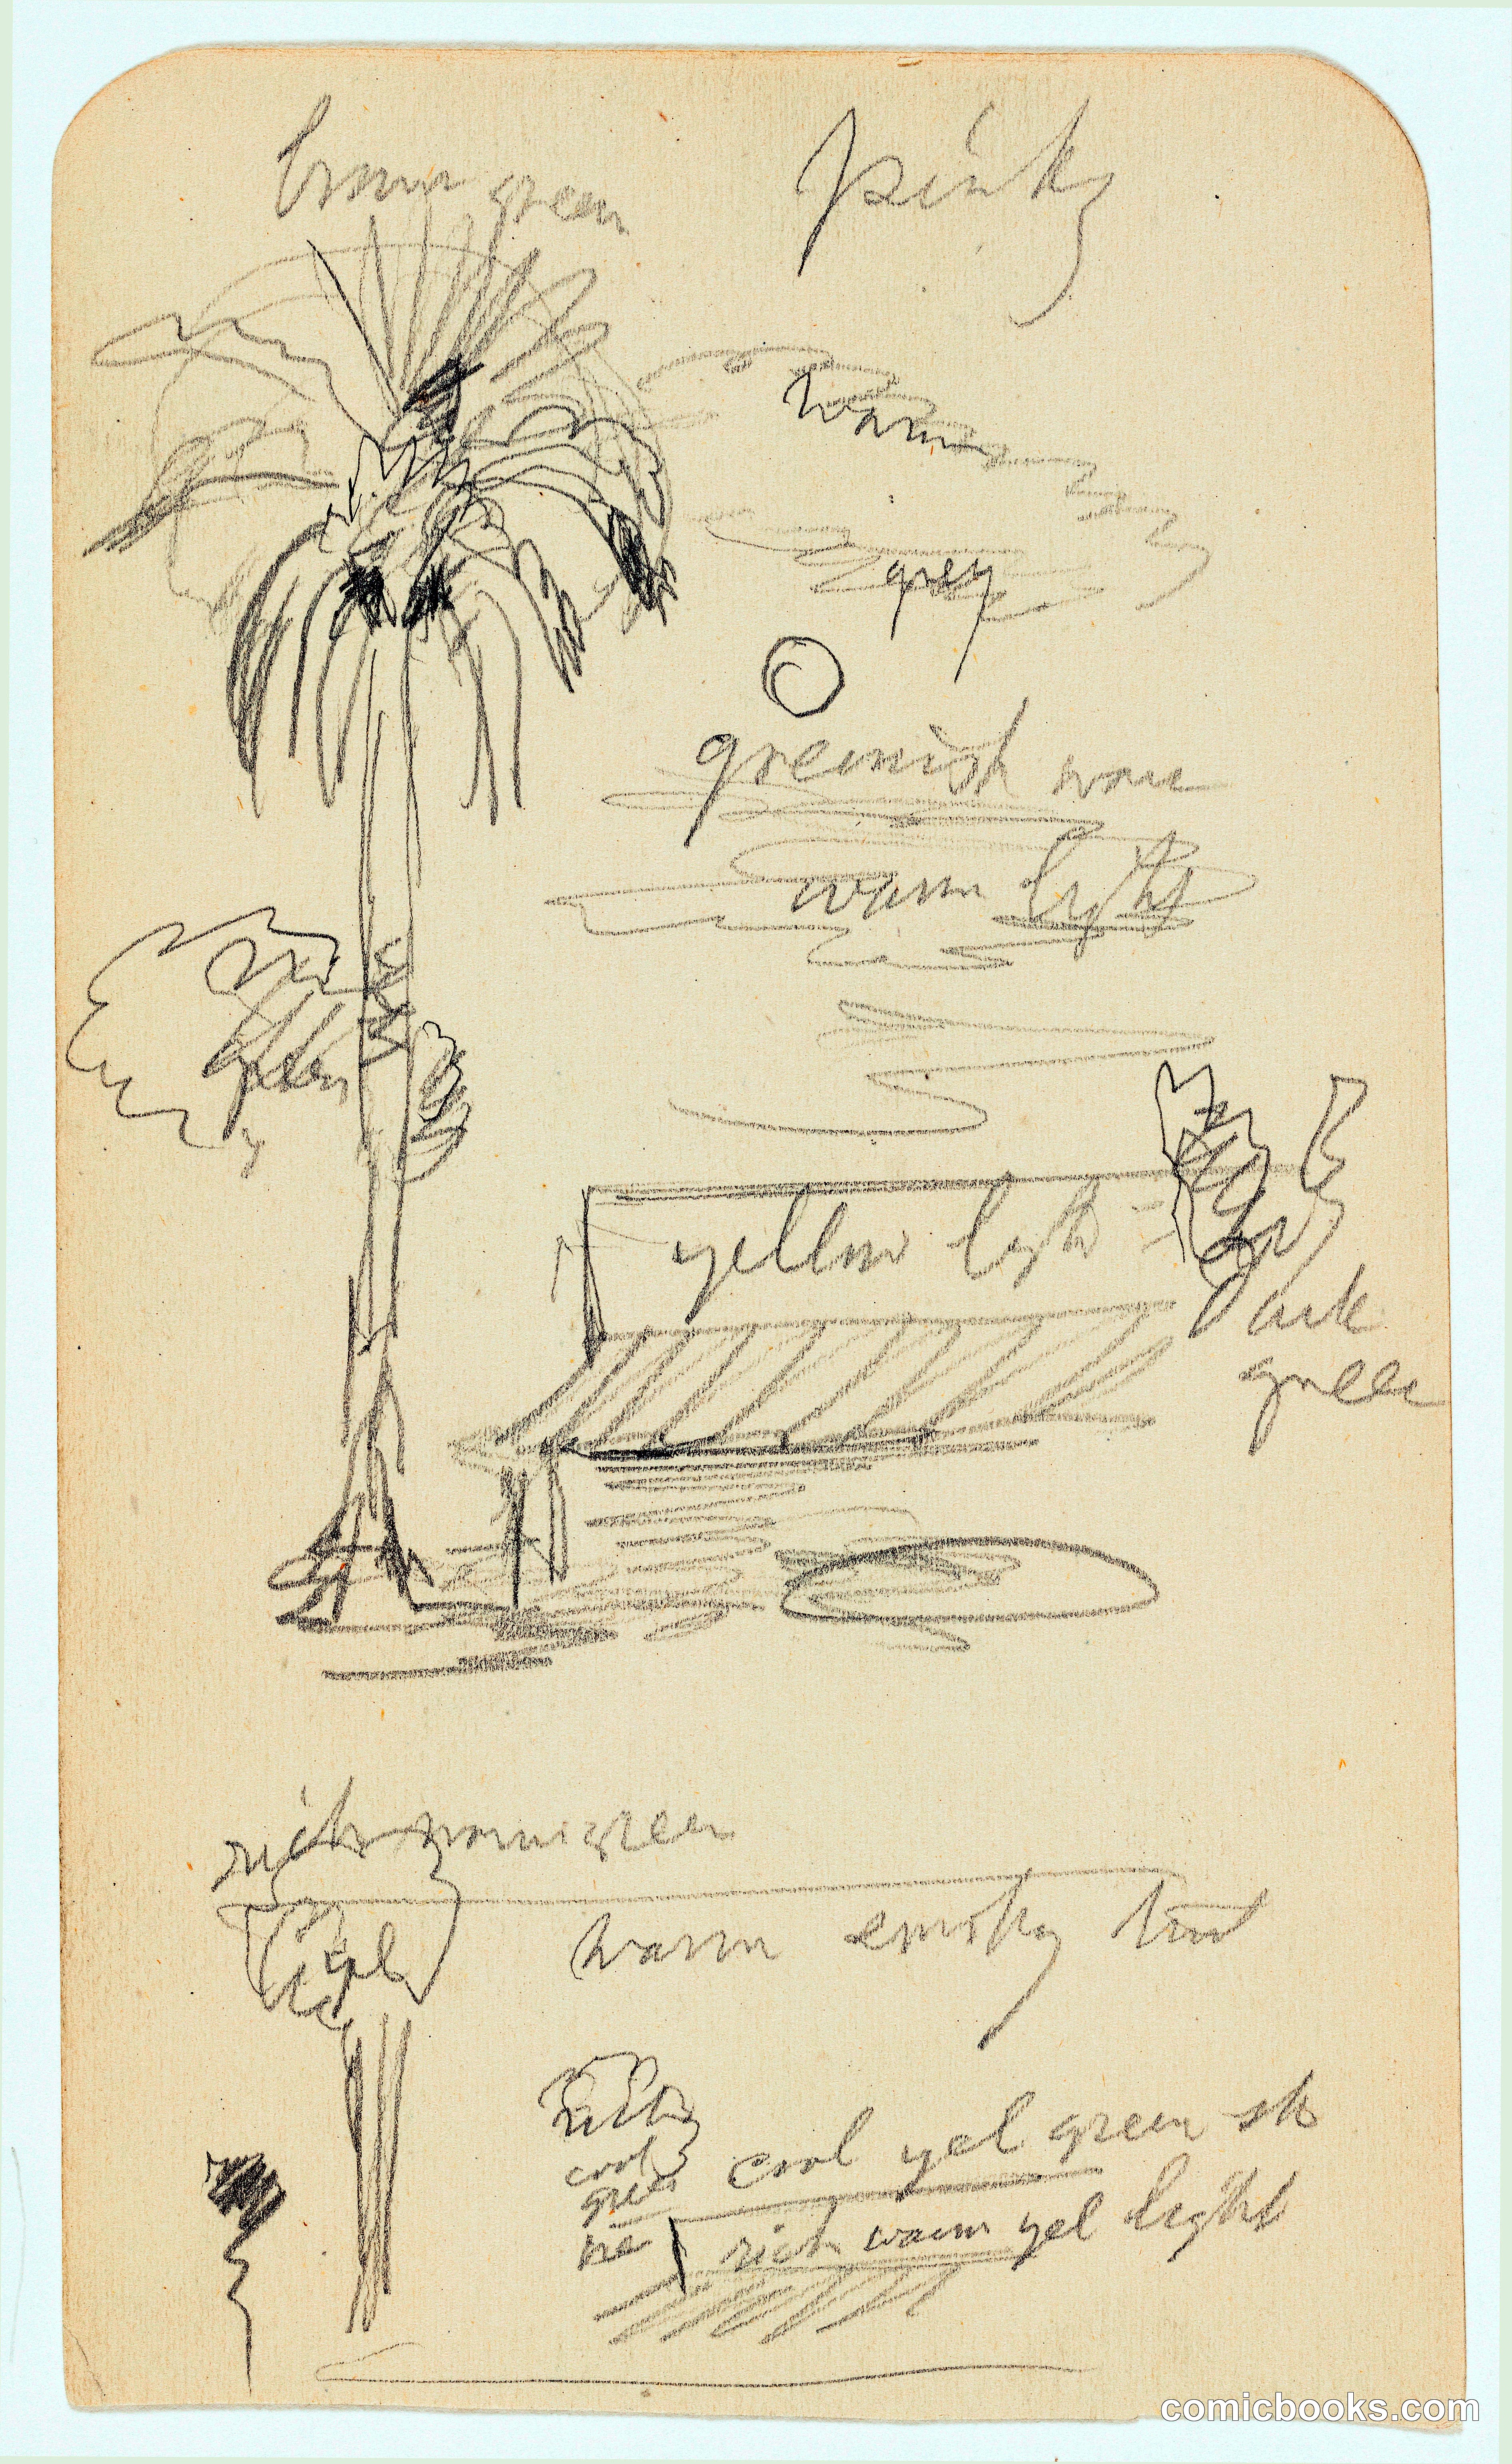 green
pinky
warm
grey
greenish
warm light
green
yellow light
Dark
green
rich warm green
warm smoky tint
rich
cool
green
cool yel green
rich warm yel light
comicbooks.com